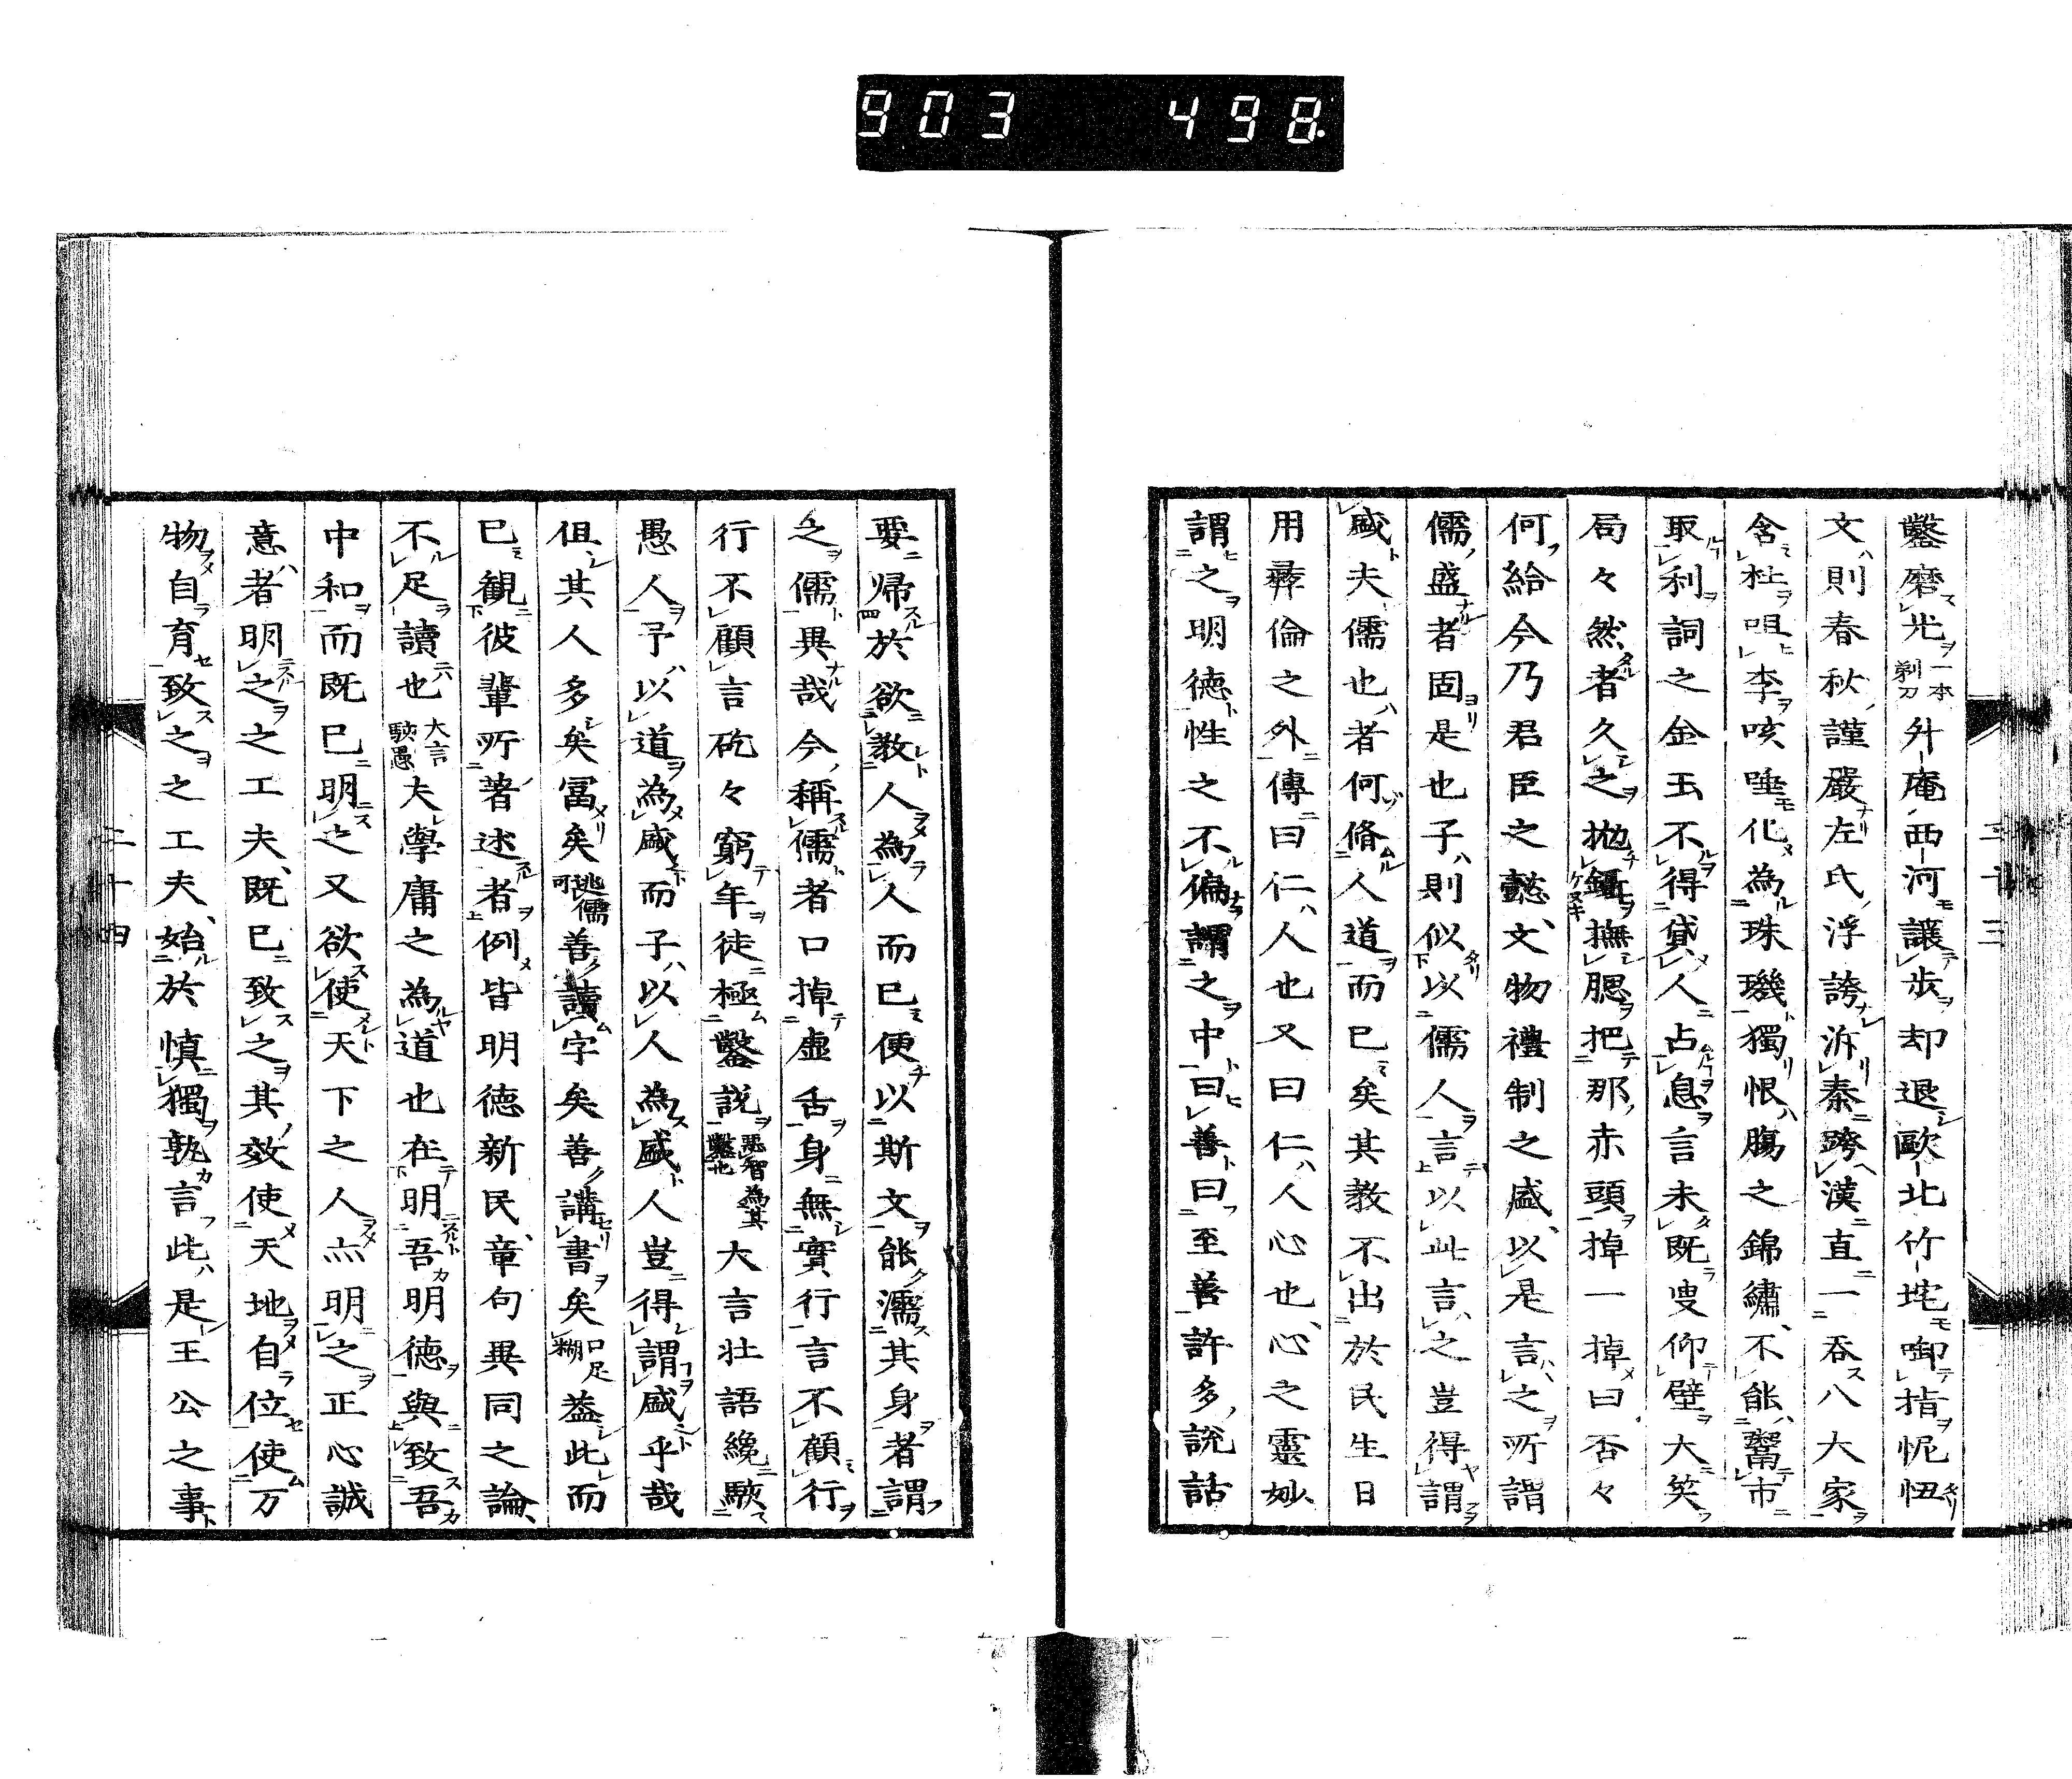 903 498
鑿磨光一本剃刀外庵西河讓歩却退歐北竹坨啣指怩忸
文則春秋謹嚴左氏浮誇泝秦跨漢直一吞八大家
含杜咀李咳唾化為珠璣獨恨膓之錦繡不能鬻市
取利詞之金玉不得貸人占息言未既叟仰壁大笑
局々然者久之抛鍤撫腮把那赤頭掉一掉曰否々
何給今乃君臣之懿文物禮制之盛以是言之所謂
儒盛者固是也子則似以儒人言以此言之豈得謂
盛夫儒也者何脩人道而已矣其教不出於民生日
用彛倫之外傳曰仁人也又曰仁人心也心之靈妙
謂之明德性之不偏謂之中曰善曰至善許多說話
三十三
要帰於欲教人為人而已便以斯文能濡其身者謂
之儒異哉今稱儒者口掉虛舌身無實行言不顧行
行不顧言矻々窮年徒極鑿說惡智為其鑿也大言壮語纔駭
愚人予以道為盛而子以人為盛人豈得謂盛乎哉
伹其人多矣冨矣逃儒可善讀字矣善講書矣口足糊葢此而
已観彼輩所著述者例皆明德新民章句異同之論
不足讀也大言駭愚夫學庸之為道也在明吾明德與致吾
中和而既已明之又欲使天下之人亦明之正心誠
意者明之之工夫既已致之其效使天地自位使万
物自育致之之工夫始於慎獨孰言此是王公之事
二十四